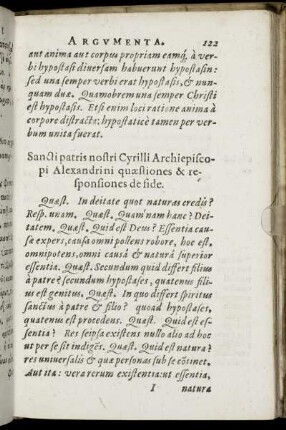 ARGVMENTA. 122
aut anima aut corpus propriam eamq́, à ver-
bi hypostasi diuersam habuerunt hypostasin:
sed una semper verbi erat hypostasis, & nun-
quam duæ. Quamobrem una semper Christi
est hypostasis. Etsi enim loci ratione anima à
corpore distracta: hypostaticè tamen per ver-
bum unita fuerat.
Sancti patris nostri Cyrilli Archiepisco-
pi Alexandrini quæstiones & re-
sponsiones de fide.
Quæst. In deitate quot naturas credis?
Resp. unam. Quæst. Quam nam hanc? Dei-
tatem. Quæst. Quid est Deus? Essentia cau-
sæ expers, causa omni pollens robore, hoc est,
omnipotens, omni causâ & naturâ superior
essentia. Quæst. Secundum quid differt filius
à patre? secundum hypostases, quatenus fili-
us est genitus. Quæst. In quo differt spiritus
sanctus à patre & filio? quoad hypostases,
quatenus est procedens. Quæst. Quid est es-
sentia? Res seipsa existens nullo alio ad hoc
ut per se sit indigẽs. Quæst. Quid est natura?
res uniuersalis & quæ personas sub se cõtinet.
Aut ita: vera rerum existentia: ut essentia,
I natura